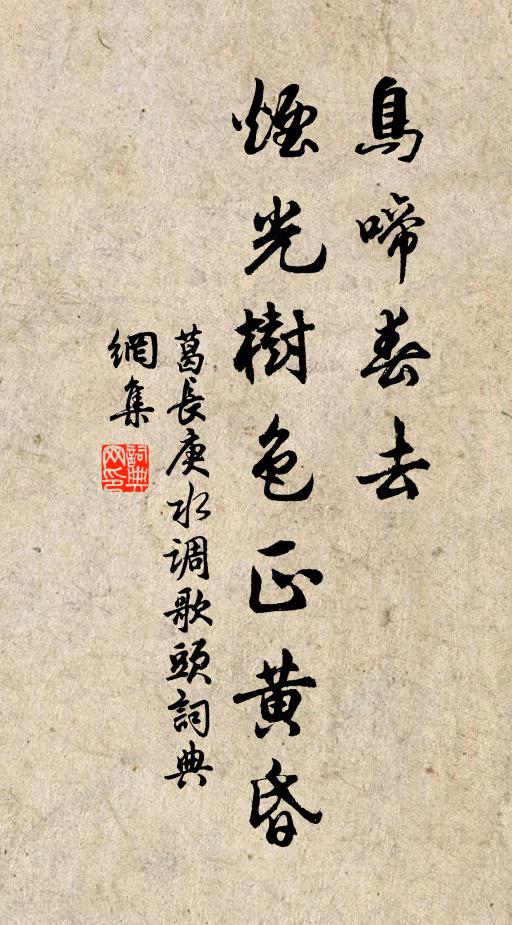 鳥啼春去
煙光樹色正黃昏
葛長庚水调歌頭詞典
網集
詞典
网印